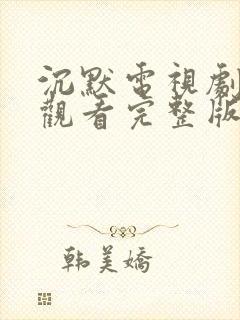 沉默電視劇
觀看完整版
韩美嬌